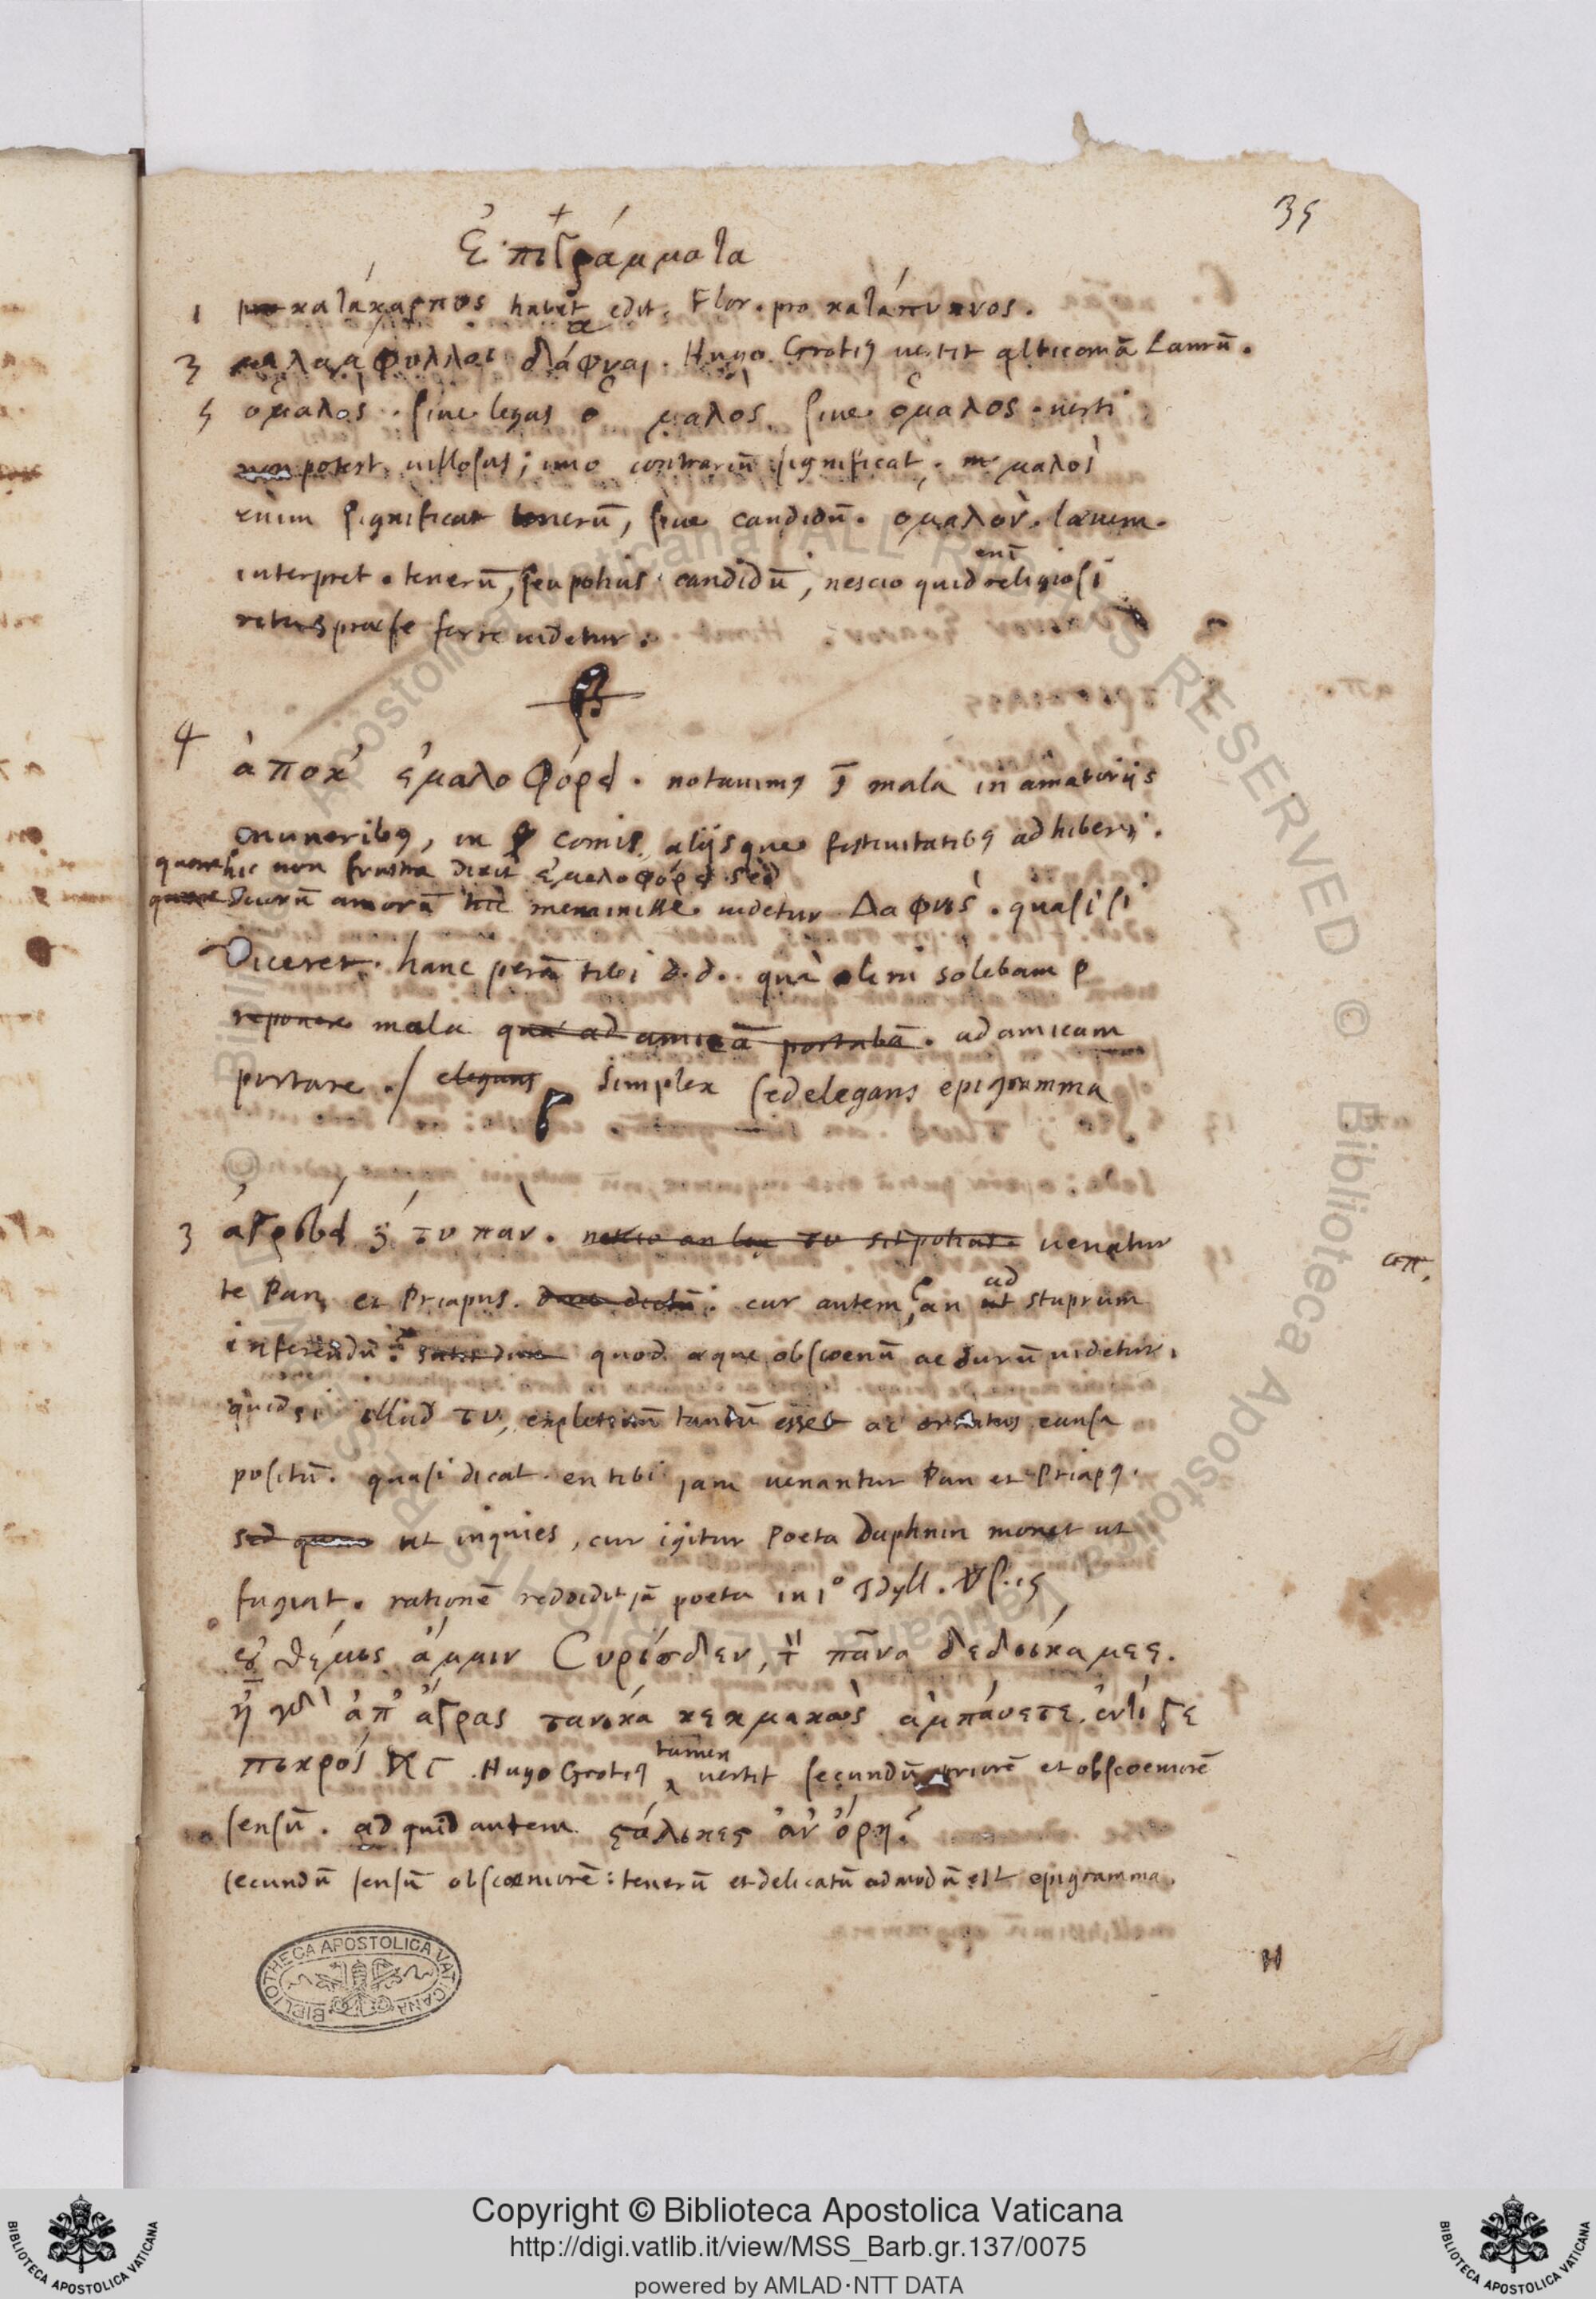 35
Ἐπιγράμματα
1 κατάκαρπος habet edit. Flor. pro κατάπυκνος.
3 μελαμφύλλοι δάφναι. Hugo Grotiꝰ uertit alticomā Laurū.
5 ὁμαλὸς. siue legas ὁ μαλὸς siue ὁμαλὸς. uerti
non potest uillosus; imo contrariū significat. μαλὸς
enim significat tenerū, siue candidū. ὁμαλὸν. laeuem.
interpret. tenerū, seu potius candidū, nescio quid enī religiosi
ritus prae se ferre uidetur.
4 ἁ ποκ' ἐμαλοφόρει. notauimꝰ mala in amatorijs
muneribꝰ, in comis alijsque festiuitatibꝰ adhiberi.
quare hic non frustra dixit ἐμαλοφόρει sed
quare suorū amorū hic meminisse uidetur Δαφνὶς. quasi si
Diceret. hanc perā tibi d.d. quâ olim solebam
reponere mala qua ad amicā portabā. ad amicam
portare. / elegans simplex sed elegans epigramma
3 ἀγρεύει τὺ πὰν. nescio an τυ sit potius uenatur
te Pan et Priapus. cur autem, an ut ad stuprum
inferendū? quod aeque obscoenū ac durū uidetur.
quid si illud τυ, expletiuū tantū esset ac ornatus causa
positū. quasi dicat. en tibi jam uenantur Pan et Priapꝰ.
sed at inquies, cur igitur Poeta Daphnin monet ut
fugiat. rationē reddidit jā poeta in 1º Idyll. Vs. 15
οὐ θέμις ἄμμιν Συρίσδεν, τ πᾶνα δεδοίκαμες.
ἦ γὰρ ἀπ' ἄγρας τανίκα κεκμακὼς ἀμπάυεται. ἐντί γε
πικρός κτ. Hugo Grotiꝰ tamen uertit secundū priorē et obscoeniorē
sensū. ad quid autem
secundū sensū obscoeniorē: tenerū et delicatū admodū est epigramma.
H
BIBLIOTHECA APOSTOLICA VATICANA
Copyright © Biblioteca Apostolica Vaticana
http://digi.vatlib.it/view/MSS_Barb.gr.137/0075
powered by AMLAD·NTT DATA
BIBLIOTECA APOSTOLICA VATICANA
BIBLIOTECA APOSTOLICA VATICANA